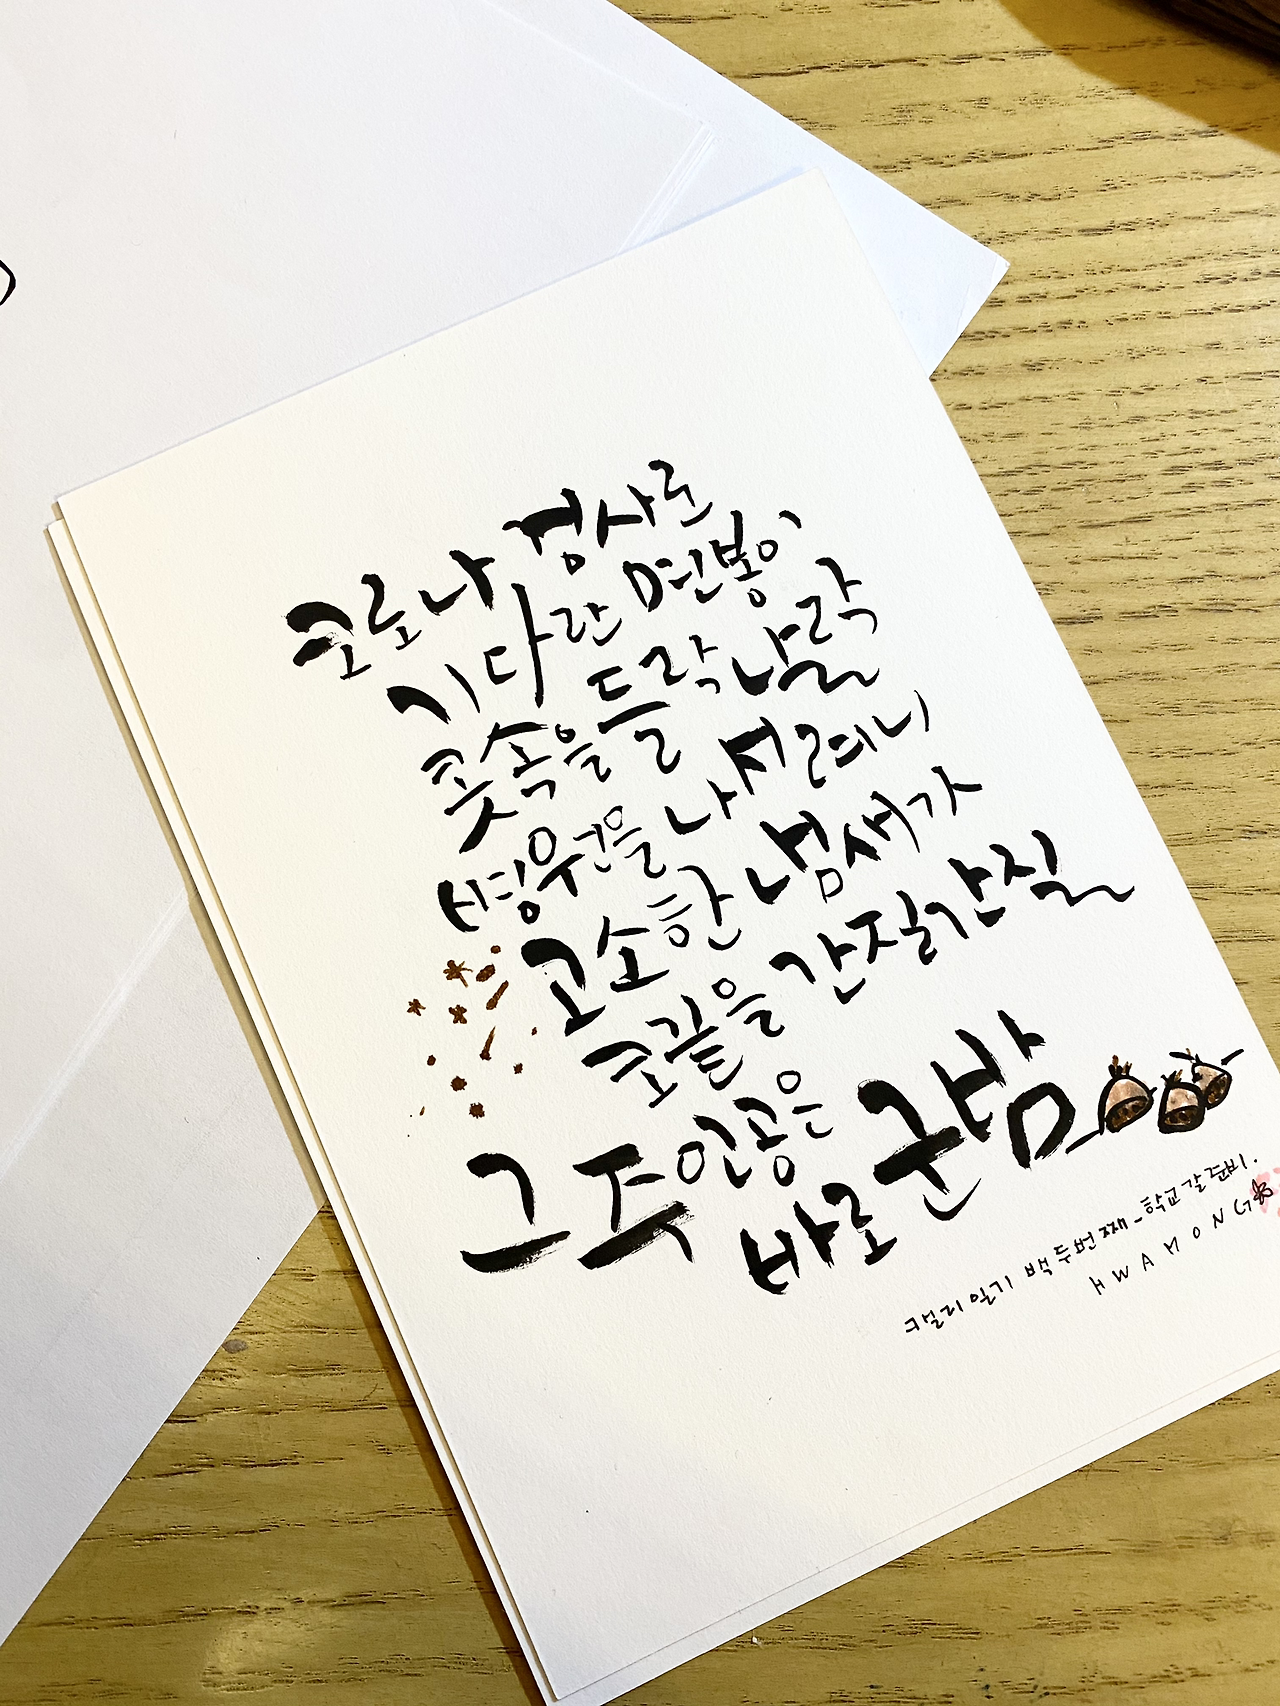 코로나 검사로
기다란 면봉이
콧속을 들락날락
병원을 나서려니
고소한 냄새가
코끝을 간질간질
그 주인공은
바로 군밤
캘리일기 백두번째_학교갈준비.
HWAHONG